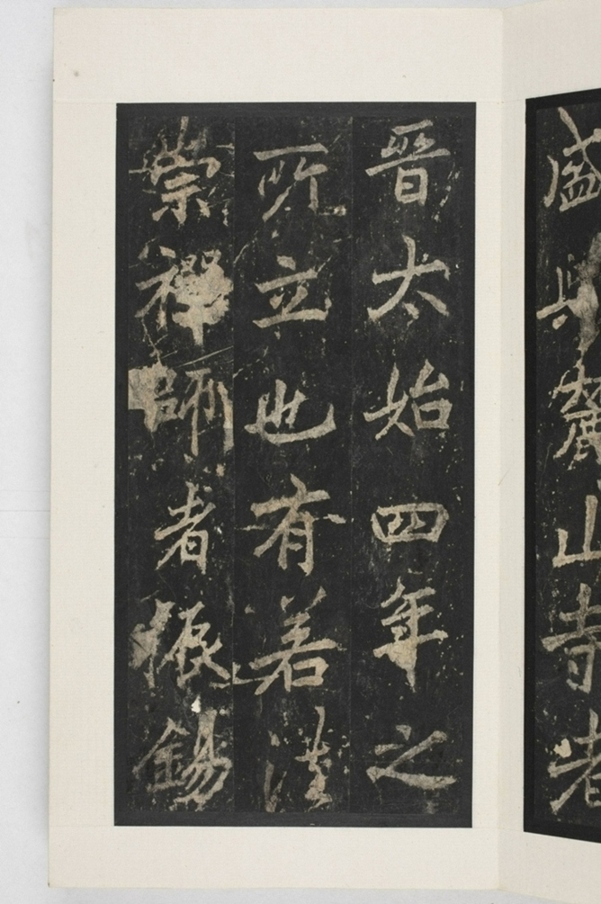 盛与麓山寺者
晋太始四年之
所立也有若法
崇禅師者振錫